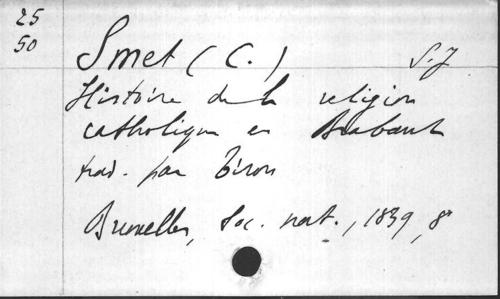 25
50
Smet (C.) S.J
Histoire de la religion
catholique en Brabant
trad. par Tiron
Bruxelles, Soc. nat., 1839, 8°